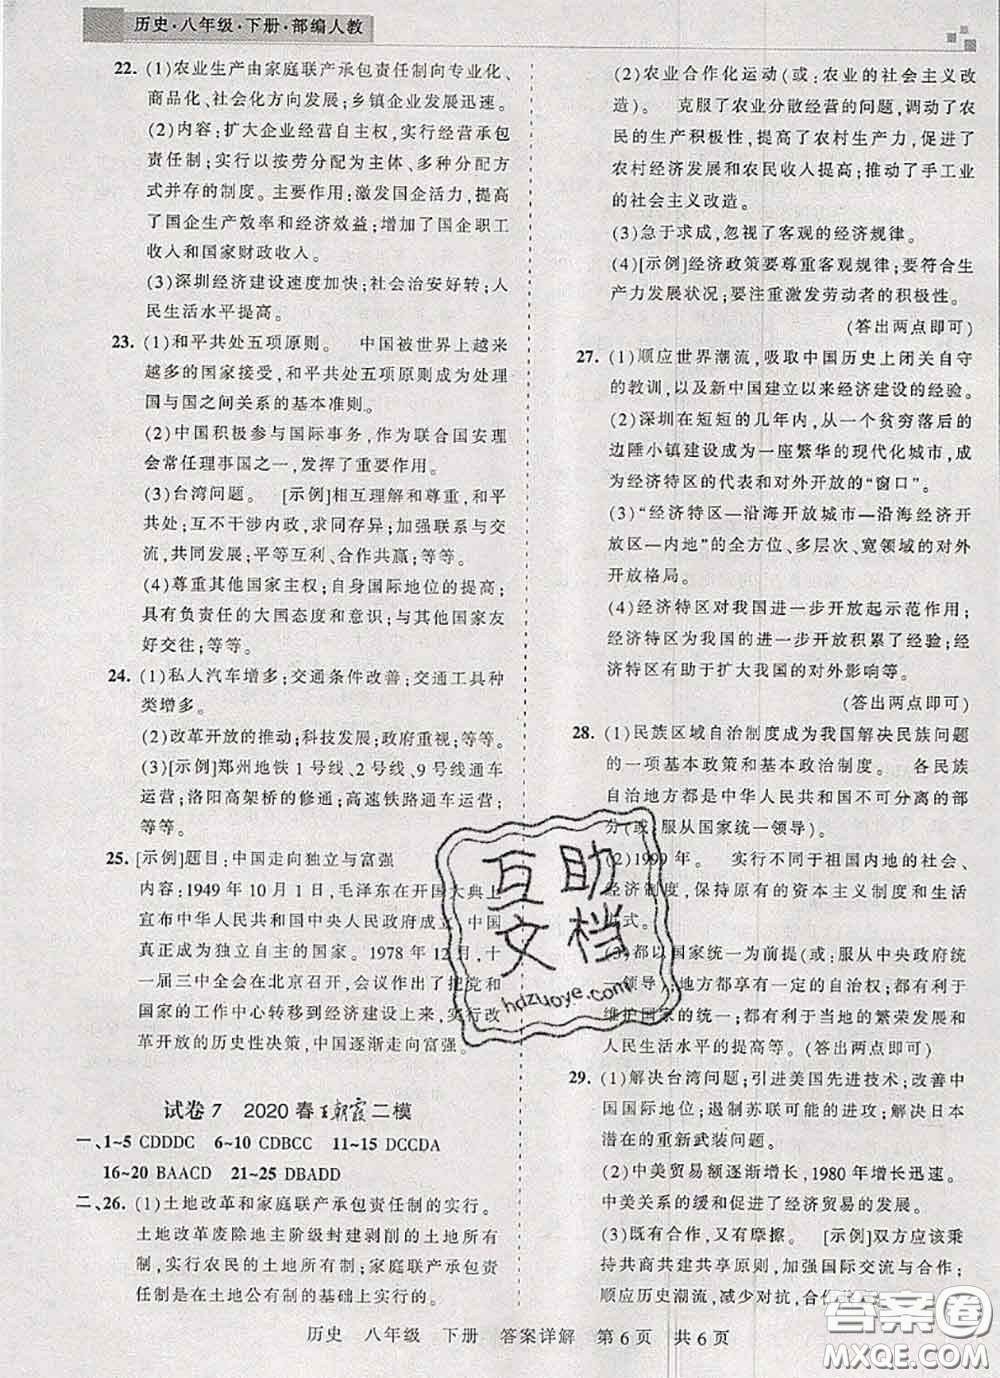 历史·八年级·下册·部编人教
22. (1)农业生产由家庭联产承包责任制向专业化、
商品化、社会化方向发展;乡镇企业发展迅速。
(2)内容:扩大企业经营自主权,实行经营承包
责任制;实行以按劳分配为主体、多种分配方
式并存的制度。主要作用:激发国企活力;提高
了国企生产效率和经济效益;增加了国企职工
收入和国家财政收入。
(3)深圳经济建设速度加快;社会治安好转;人
民生活水平提高。
23. (1)和平共处五项原则。 中国被世界上越来
越多的国家接受,和平共处五项原则成为处理
国与国之间关系的基本准则。
(2)中国积极参与国际事务,作为联合国安理
会常任理事国之一,发挥了重要作用。
(3)台湾问题。 [示例]相互理解和尊重,和平
共处;互不干涉内政,求同存异;加强联系与交
流,共同发展;平等互利、合作共赢;等等。
(4)尊重其他国家主权;自身国际地位的提高;
具有负责任的大国态度和意识;与其他国家友
好交往;等等。
24. (1)私人汽车增多;交通条件改善;交通工具种
类增多。
(2)改革开放的推动;科技发展;政府重视;等等。
(3)[示例]郑州地铁 1 号线、2 号线、9 号线通车
运营;洛阳高架桥的修通;高速铁路通车运营;
等等。
25. [示例]题目:中国走向独立与富强
内容:1949 年 10 月 1 日,毛泽东在开国大典上
宣布中华人民共和国中央人民政府成立,中国
真正成为独立自主的国家。1978 年 12 月,十
一届三中全会在北京召开,会议作出了把党和
国家的工作中心转移到经济建设上来,实行改
革开放的历史性决策,中国逐渐走向富强。
试卷 7 2020 春王朝霞二模
一、1~5 CDDDC 6~10 CDBCC 11~15 DCCDA
16~20 BAACD 21~25 DBADD
二、26. (1)土地改革和家庭联产承包责任制的实行。
土地改革废除地主阶级封建剥削的土地所有
制,实行农民的土地所有制;家庭联产承包责
任制是在土地公有制的基础上实行的。
(2)农业合作化运动(或:农业的社会主义改
造)。 克服了农业分散经营的问题,调动了农
民的生产积极性,提高了农村生产力,促进了
农村经济发展和农民收入提高;推动了手工业
的社会主义改造。
(3)急于求成,忽视了客观的经济规律。
(4)[示例]经济政策要尊重客观规律;要符合生
产力发展状况;要注重激发劳动者的积极性。
(答出两点即可)
27. (1)顺应世界潮流,吸取中国历史上闭关自守
的教训,以及新中国建立以来经济建设的经验。
(2)深圳在短短的几年内,从一个贫穷落后的
边陲小镇建设成为一座繁华的现代化城市,成
为经济特区的代表和对外开放的“窗口”。
(3)“经济特区—沿海开放城市—沿海经济开
放区—内地”的全方位、多层次、宽领域的对外
开放格局。
(4)经济特区对我国进一步开放起示范作用;
经济特区为我国的进一步开放积累了经验;经
济特区有助于扩大我国的对外影响等。
(答出两点即可)
28. (1)民族区域自治制度成为我国解决民族问题
的一项基本政策和基本政治制度。 各民族
自治地方都是中华人民共和国不可分离的部
分(或:服从国家统一领导)。
(2)1999 年。 实行不同于祖国内地的社会、
经济制度,保持原有的资本主义制度和生活
方式。
(3)都以国家统一为前提(或:服从中央政府统
一领导);地方都享有一定的自治权;都有利于
维护国家的统一;都有利于当地的繁荣发展和
人民生活水平的提高等。(答出两点即可)
29. (1)解决台湾问题;引进美国先进技术;改善中
国国际处境;遏制苏联可能的进攻;解决日本
潜在的重新武装问题。
(2)中美贸易额逐渐增长,1980 年增长迅速。
中美关系的缓和促进了经济贸易的发展。
(3)既有合作,又有摩擦。 [示例]双方应该秉
持共商共建共享原则,加强国际交流与合作;
顺应历史潮流,减少对抗,合作共
互助
文档
hdzuoye.com
答案圈
MXQE.COM
历史 八年级 下册 答案详解 第 6 页 共 6 页